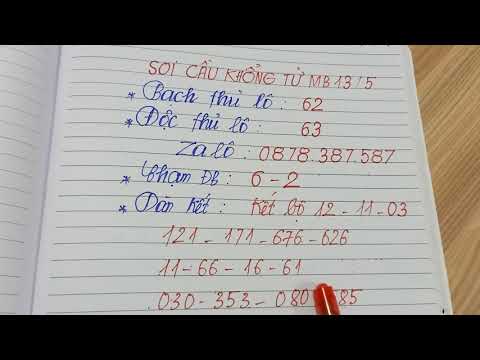 SOI CẦU KHỔNG TỬ MB 13/5
* Bạch thủ lô : 62
* Độc thủ lô : 63
Zalô : 0878.387.587
* Chạm ĐB : 6 - 2
* Dàn kết : Kết bộ 12 - 11 - 03
121 - 171 - 676 - 626
11 - 66 - 16 - 61
030 - 353 - 080 585